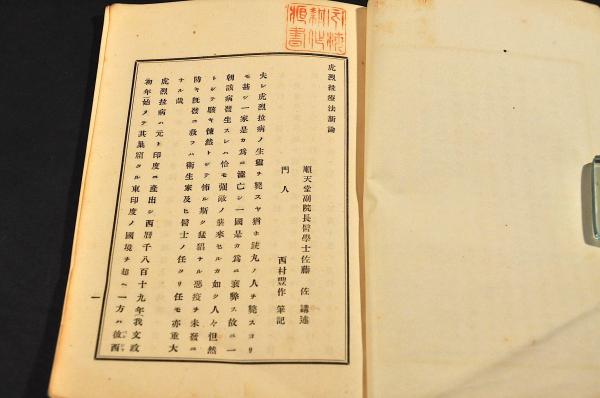 虎烈拉療法新論
順天堂副院長醫學士佐藤 佐 講述
門人 西村豐作 筆記
夫レ虎烈拉病ノ生靈ヲ斃スヤ猶ホ銃丸ノ人ヲ斃スヨリ
モ甚シ一家是カ爲ニ滅亡シ一國是カ爲ニ衰弊ス故ニ一
朝該病發生スレハ恰モ強敵ノ襲來セルカ如ク人々怛然
トシテ駭キ悚然トシテ怖ル斯ク猛猖ナル惡疫ヲ未發ニ
防キ旣發ニ救フハ衛生家及ヒ醫士ノ任タリ任モ亦重大
ナル哉
虎烈拉病ハ元ト印度ニ產出シ西曆千八百十九年我文政
初年始メテ其巢窟タル東印度ノ國境ヲ超ヘ一方ハ彼西
一